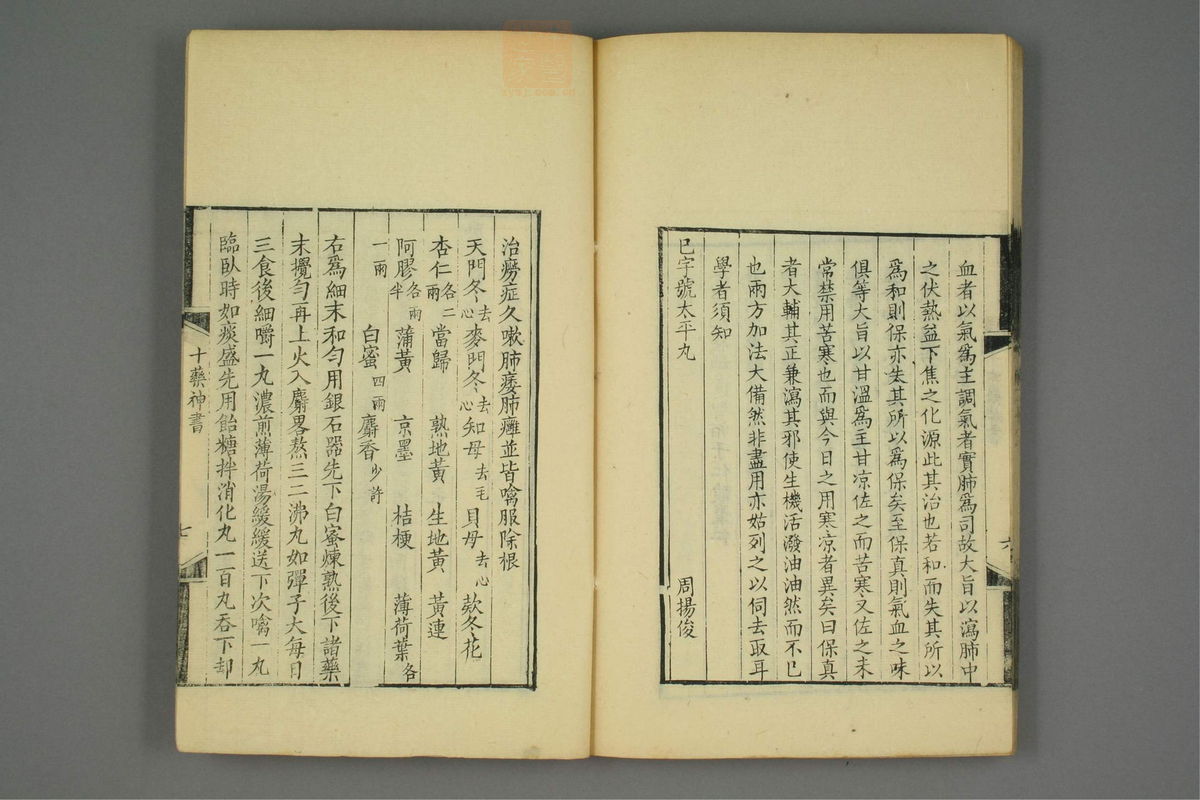 血者以氣為主調氣者實肺為司故大旨以瀉肺中
之伏熱益下焦之化源此其治也若和而失其所以
為和則保亦失其所以為保矣至保真則氣血之味
俱等大旨以甘溫為主甘凉佐之而苦寒又佐之未
常禁用苦寒也而與今日之用寒凉者異矣曰保真
者大輔其正兼瀉其邪使生機活潑油油然而不已
也兩方加法大備然非盡用亦姑列之以伺去取耳
學者須知
周揚俊
巳字號太平丸
六
治癆症久嗽肺痿肺癰並皆噙服除根
天門冬去心麥門冬去心知母去毛貝母去心欵冬花
杏仁各二兩當歸 熟地黃 生地黃 黃連
阿膠各兩半 蒲黃 京墨 桔梗 薄荷葉各
一兩 白蜜四兩 麝香少許
右爲細末和勻用銀石器先下白蜜煉熟後下諸藥
末攪勻再上火入麝畧熬三二沸丸如彈子大每日
三食後細嚼一丸濃煎薄荷湯緩緩送下次噙一丸
臨臥時如痰盛先用飴糖拌消化丸一百丸吞下却
十藥神書
七